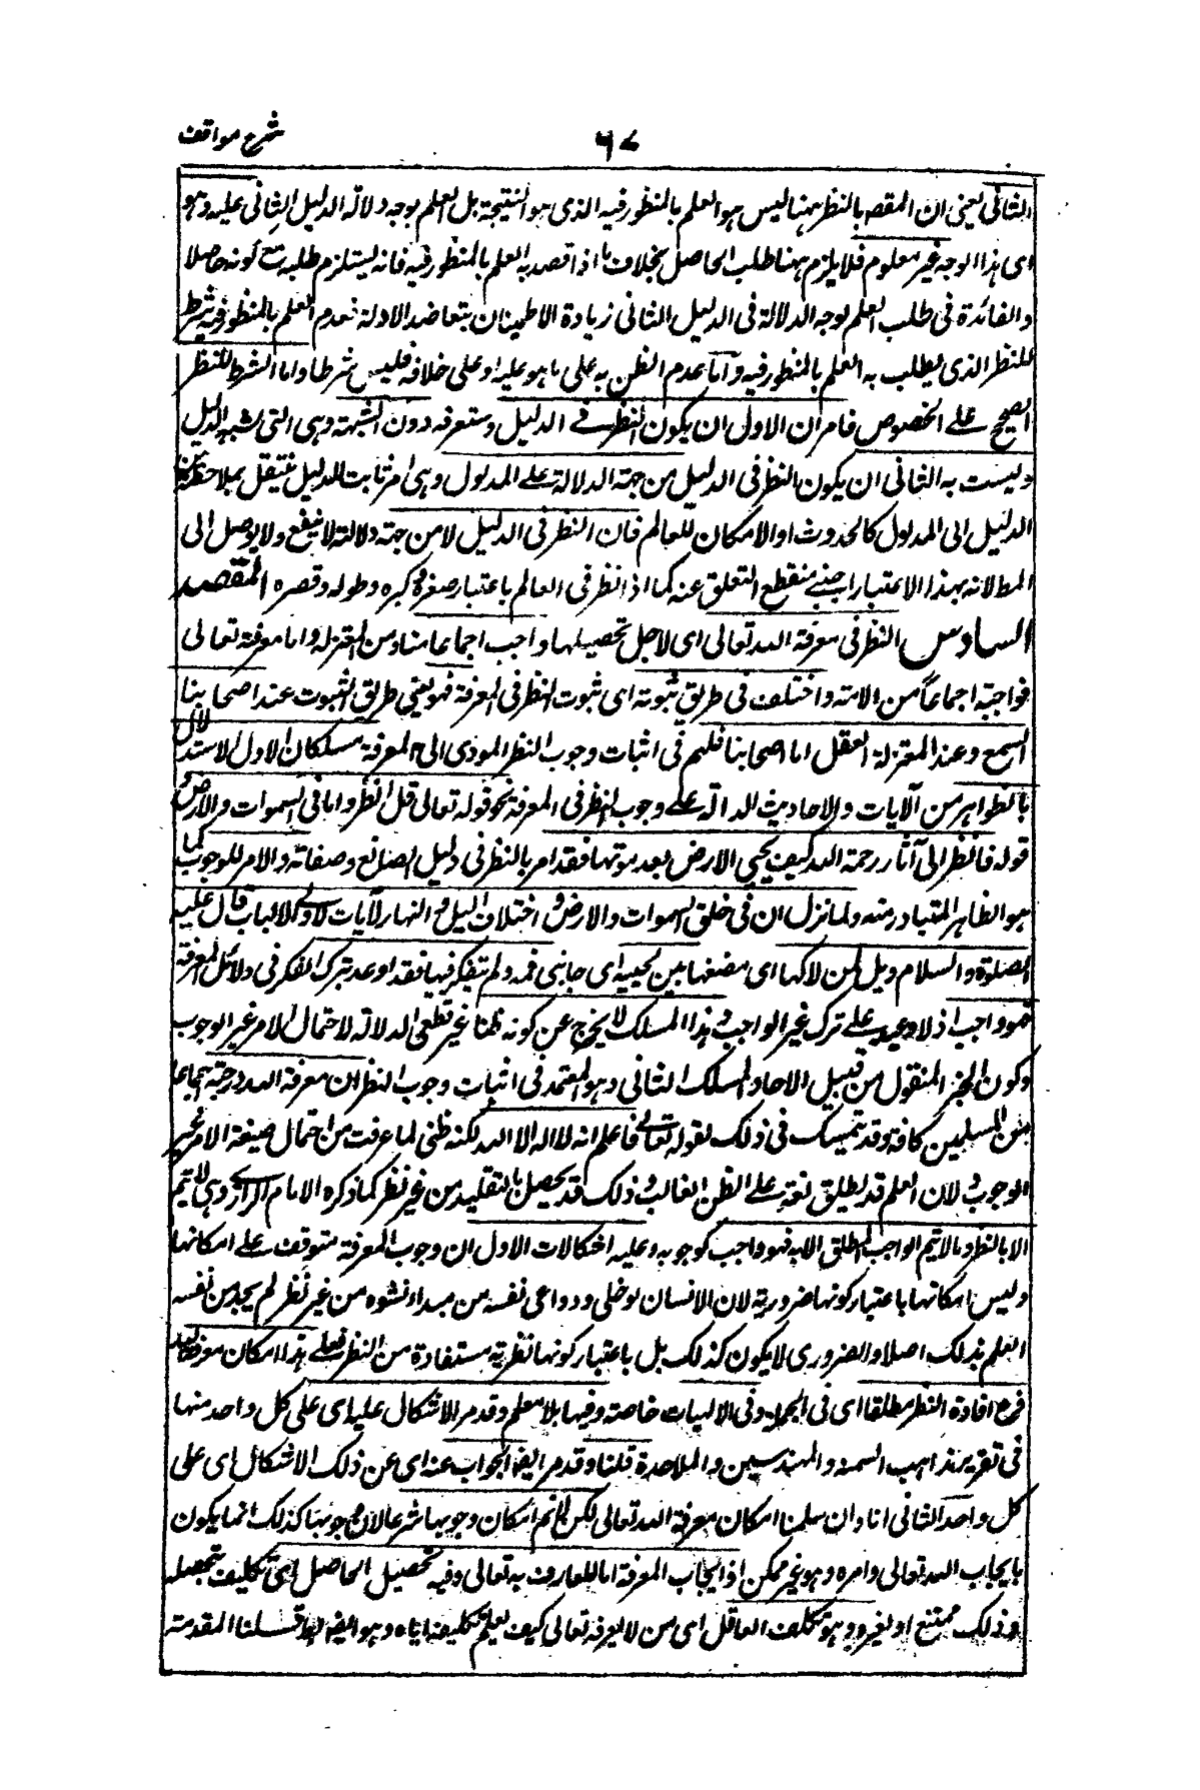 شرح مواقف
٦٧
الثانى يعنى ان المقصد بالنظر ههنا ليس هو العلم بالمنظور فيه الذى هو النتيجة بل العلم بوجه دلالة الدليل الثانى عليه وهو
اى هذا الوجه غير معلوم فلا يلزم ههنا طلب الحاصل بخلاف ما اذا قصد به العلم بالمنظور فيه فانه يستلزم طلبه مع كونه حاصلا
والفائدة فى طلب العلم بوجه الدلالة فى الدليل الثانى زيادة الاطمينان بتعاضد الادلة فعدم العلم بالمنظور فيه شرط
للنظر الذى يطلب به العلم بالمنظور فيه وأما عدم الظن به على ما هو عليه او على خلافه فليس شرطا واما الشرط للنظر
الصحيح على الخصوص فامران الاول ان يكون النظر فى الدليل وستعرفه دون الشبهة وهى التى تشبه الدليل
وليست به الثانى ان يكون النظر فى الدليل من جهة الدلالة على المدلول وهى امر ثابت للدليل ينتقل بملاحظته
الدليل الى المدلول كالحدوث او الامكان للعالم فان النظر فى الدليل لا من جهة دلالته لا ينفع ولا يوصل الى
المط لانه بهذا الاعتبار اجنبى منقطع التعلق عنه كما اذا نظر فى العالم باعتبار صغره و كبره وطوله وقصره المقصد
السادس النظر فى معرفة الله تعالى اى لاجل تحصيلها واجب اجماعا منا ومن المعتزلة واما معرفته تعالى
فواجبة اجماعا من الامة واختلف فى طريق ثبوته اى ثبوت النظر فى المعرفة فهو يعنى طريق الثبوت عند اصحابنا
السمع وعند المعتزلة العقل اما اصحابنا فلهم فى اثبات وجوب النظر المودى الى المعرفة مسلكان الاول الاستدلال
بالظواهر من الآيات والاحاديث الدالة على وجوب النظر فى المعرفة نحو قوله تعالى قل انظروا ما فى السموات والارض و
قوله فانظر الى آثار رحمة الله كيف يحيى الارض بعد موتها فقد امر بالنظر فى دليل الصانع وصفاته والامر للوجوب كما
هو الظاهر المتبادر منه ولما نزل ان فى خلق السموات والارض و اختلاف اليل و النهار لآيات لاولى الالباب قال عليه
الصلوة والسلام ويل لمن لاكها اى مضغها بين لحييه اى جانبى فمه ولم يتفكر فيها فقد اوعد بترك الفكر فى دلائل المعرفة
فهو واجب اذ لا وعيد على ترك غير الواجب و هذا المسلك لا يخرج عن كونه ظنا غير قطعى الدلالة لاحتمال الامر غير الوجوب
وكون الخبر المنقول من قبيل الاحاد المسلك الثانى وهو المعتمد فى اثبات وجوب النظر ان معرفة الله واجبة اجماعا
من المسلمين كافة وقد تمسك فى ذلك بقوله تعالى فاعلم انه لا اله الا الله لكنه ظنى لما عرفت من احتمال صيغة الامر غير
الوجوب و لان العلم قد يطلق لغة على الظن الغالب و ذلك قد يحصل بالتقليد من غير نظر كما ذكره الامام الرازى وهى لا تتم
الا بالنظر وما لا يتم الواجب المطلق الا به فهو واجب كوجوبه وعليه اشكالات الاول ان وجوب المعرفة متوقف على امكانها
وليس امكانها باعتبار كونها ضرورية لان الانسان لو خلى ودواعى نفسه من مبدا نشوه من غير نظر لم يجد من نفسه
العلم بذلك اصلا والضرورى لا يكون كذلك بل باعتبار كونها نظرية مستفادة من النظر فعلى هذا امكان معرفة الله
فرع افادة النظر مطلقا اى فى الجملة وفى الالهيات خاصة وفيها بلا معلم وقد مر الاشكال عليه اى على كل واحد منها
فى تقرير مذاهب السمنية والمهندسين والملاحدة قلنا وقد مر ايضا الجواب عنه اى عن ذلك الاشكال اى على
كل واحد الثانى انا وان سلمنا امكان معرفة الله تعالى لكن لا نم امكان وجوبها شرعا لان وجوبها كذلك انما يكون
بايجاب الله تعالى وامره وهو غير ممكن اذ ايجاب المعرفة اما للعارف به تعالى وفيه تحصيل الحاصل اى تكليف بتحصيله
وذلك ممتنع او لغيره وهو تكليف الغافل اى من لا يعرفه تعالى كيف يعلم تكليفه اياه وهو ايضا باطل قلنا المقدمة